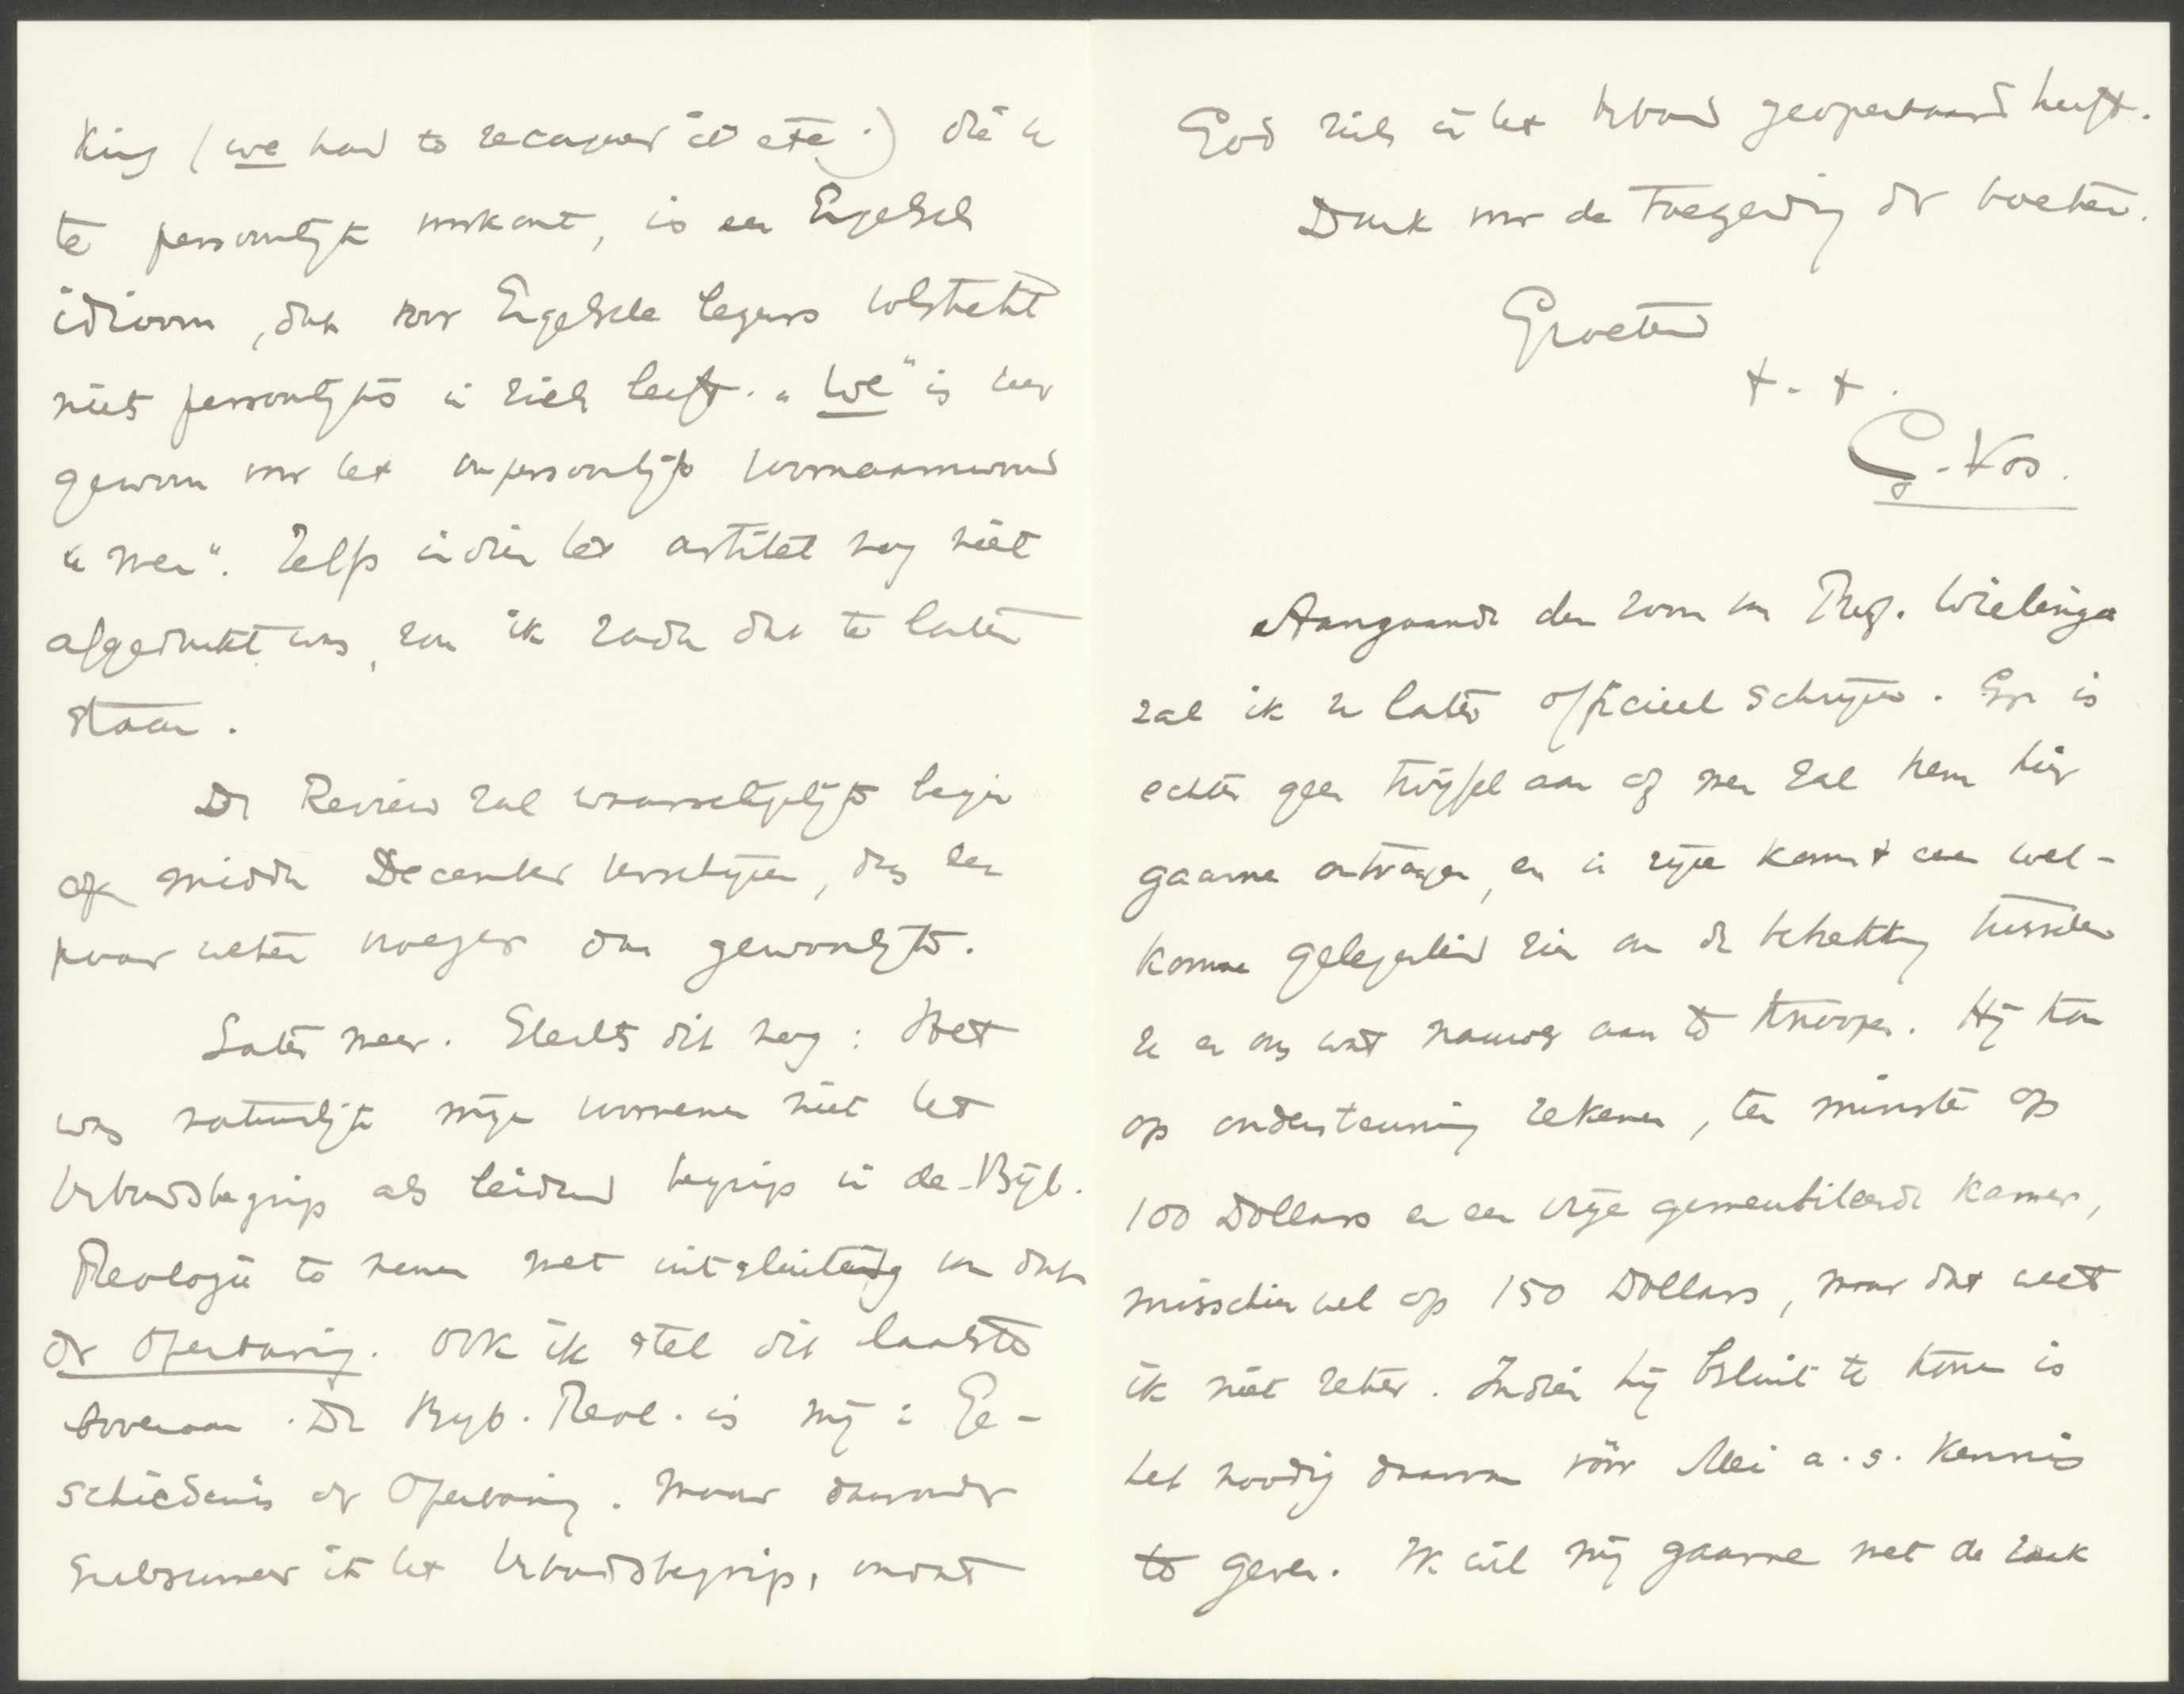 king (we had to recapner it etc.) die u
te persoonlijk voorkomt, is een Engelsch
idioom, dat voor Engelsche lezers volstrekt
niets persoonlijks in zich heeft. „We" is hier
gewoon voor het onpersoonlijk voornaamwoord
„men". Zelfs indien het artikel nog niet
afgedrukt was, zou ik raden dat te laten
staan.
De Review zal waarschijnlijk begin
of midden December verschijnen, dus een
paar weken vroeger dan gewoonlijk.
Later meer. Slechts dit nog: Het
was natuurlijk mijn voornemen niet het
Verbondsbegrip als leidend begrip in de Bijb.
Theologie te nemen met uitsluiting van dat
der Openbaring. Ook ik stel dit laatste
bovenaan. De Bijb. Theol. is mij: Ge-
schiedenis der Openbaring. Maar daaronder
subsumeer ik het Verbondsbegrip, omdat
God zich in het Verbond geopenbaard heeft.
Dank voor de toezending der boeken.
Groetend
t. t.
G. Vos.
Aangaande den zoon van Prof. Wielenga
zal ik u later officieel schrijven. Er is
echter geen twijfel aan of men zal hem hier
gaarne ontvangen, en in zijn komst een wel-
kome gelegenheid zien om de betrekking tusschen
u en ons wat nauwer aan te knoopen. Hij kan
op ondersteuning rekenen, ten minste op
100 Dollars en een vrije gemeubileerde kamer,
misschien wel op 150 Dollars, maar dat weet
ik niet zeker. Indien hij besluit te komen is
het noodig daarvan vóór Mei a.s. kennis
te geven. Ik wil mij gaarne met de zaak